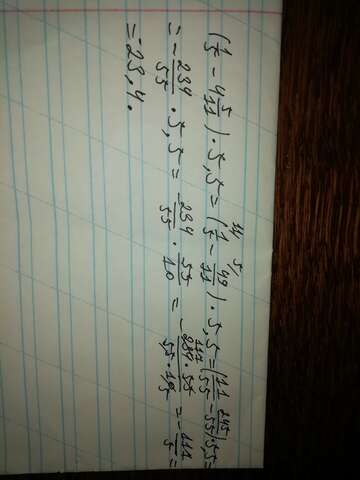 (1/5 - 4 5/11) · 5,5 = (1/5 - 49/11) · 5,5 = (11/55 - 245/55) · 5,5 =
= - 234/55 · 5,5 = - 234/55 · 55/10 = - 234 · 55/55 · 10 = - 117/5 =
= -23,4.